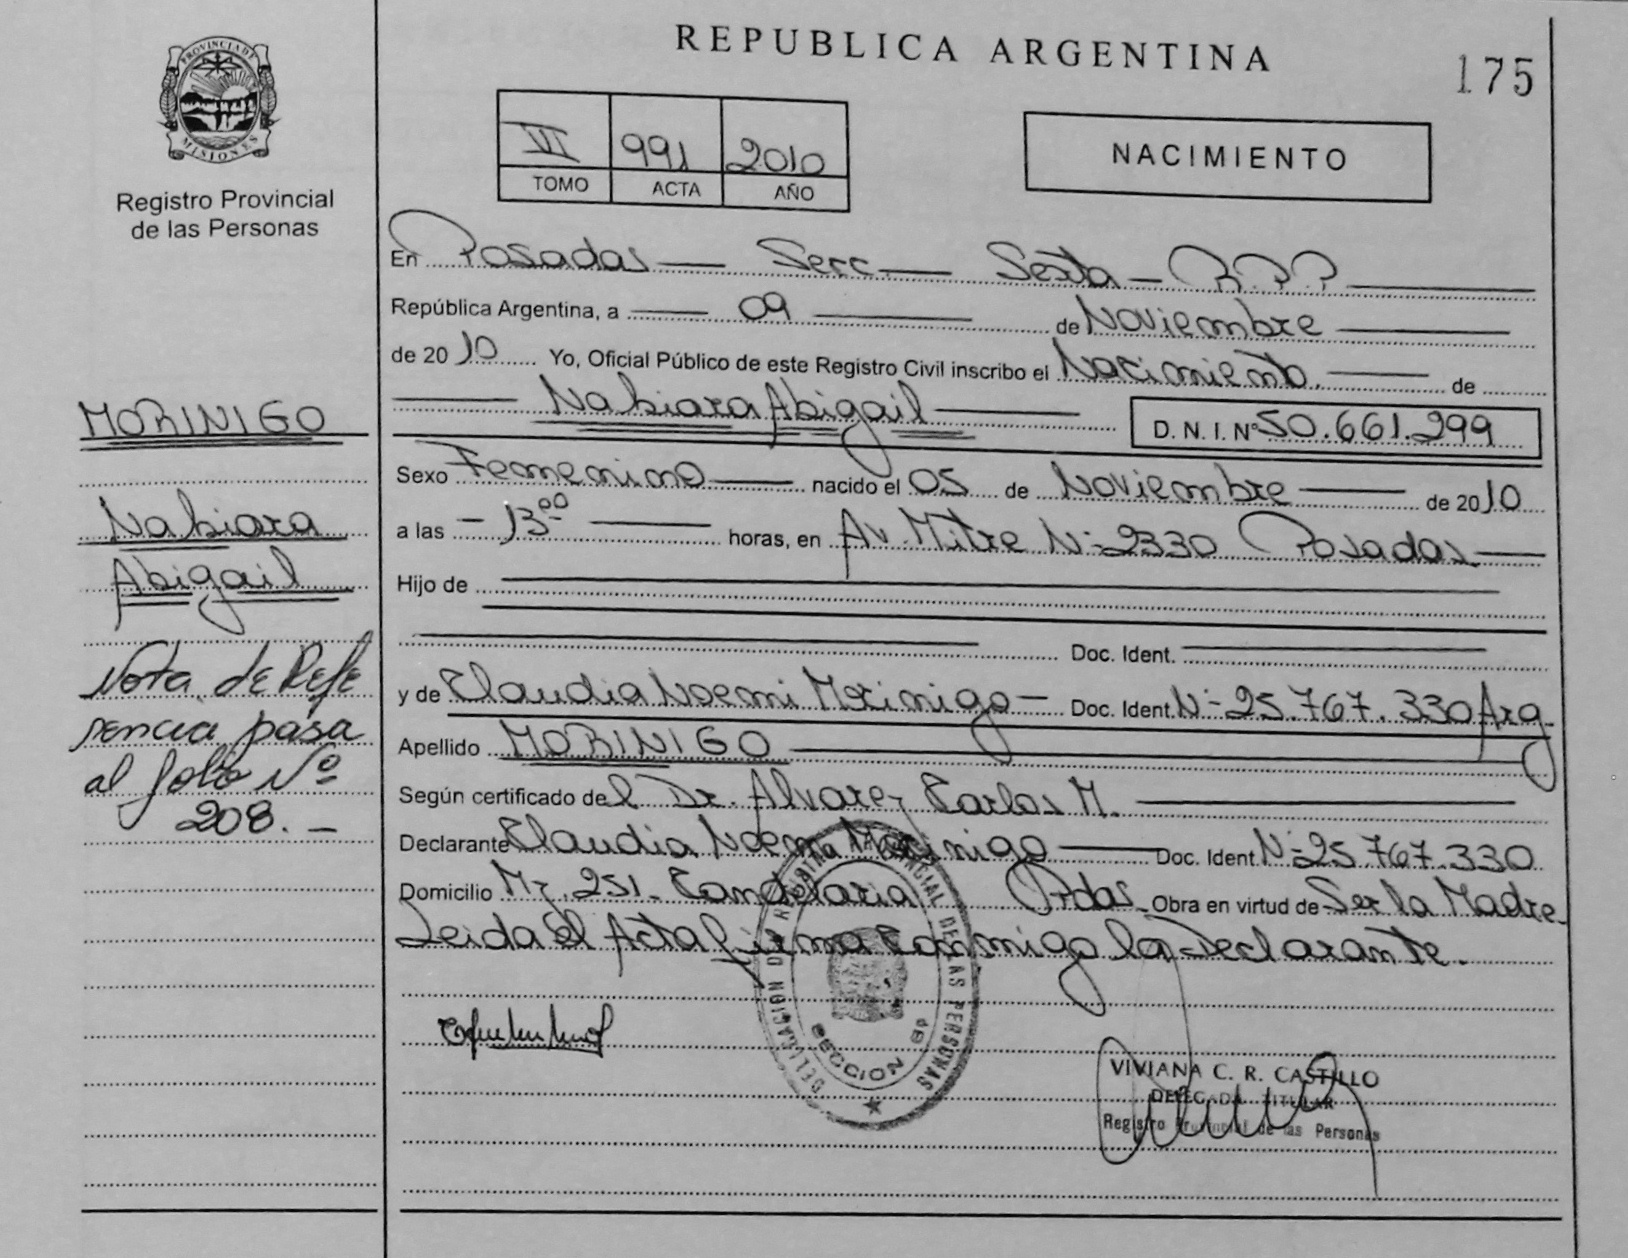 REPUBLICA ARGENTINA
175
PROVINCIA DE
MISIONES
Registro Provincial
de las Personas
VI 991 2010
TOMO ACTA AÑO
NACIMIENTO
En Posadas — Secc — Sexta — R.P.P
República Argentina, a 09 de Noviembre
de 2010 Yo, Oficial Público de este Registro Civil inscribo el Nacimiento. de
Nabiara Abigail D.N.I.Nº 50.661.299
Sexo Femenino nacido el 05 de Noviembre de 2010
a las - 13 00 horas, en Av. Mitre Nº 2330 Posadas
Hijo de
Doc. Ident.
y de Claudia Noemi Morinigo Doc. Ident. Nº 25.767.330 Arg.
Apellido MORINIGO
Según certificado del Dr. Alvarez Carlos M.
Declarante Claudia Noemi Morinigo Doc. Ident. Nº 25.767.330
Domicilio Mz. 251. Candelaria Pdas. Obra en virtud de Ser la Madre.
Leida el Acta firma Conmigo la Declarante.
MORINIGO
Nabiara
Abigail
Nota de Refe
rencia pasa
al folio Nº
208. —
DELEGACION REGISTRO PROVINCIAL DE LAS PERSONAS
SECCION 6ª
VIVIANA C. R. CASTILLO
DELEGADA TITULAR
Registro Provincial de las Personas